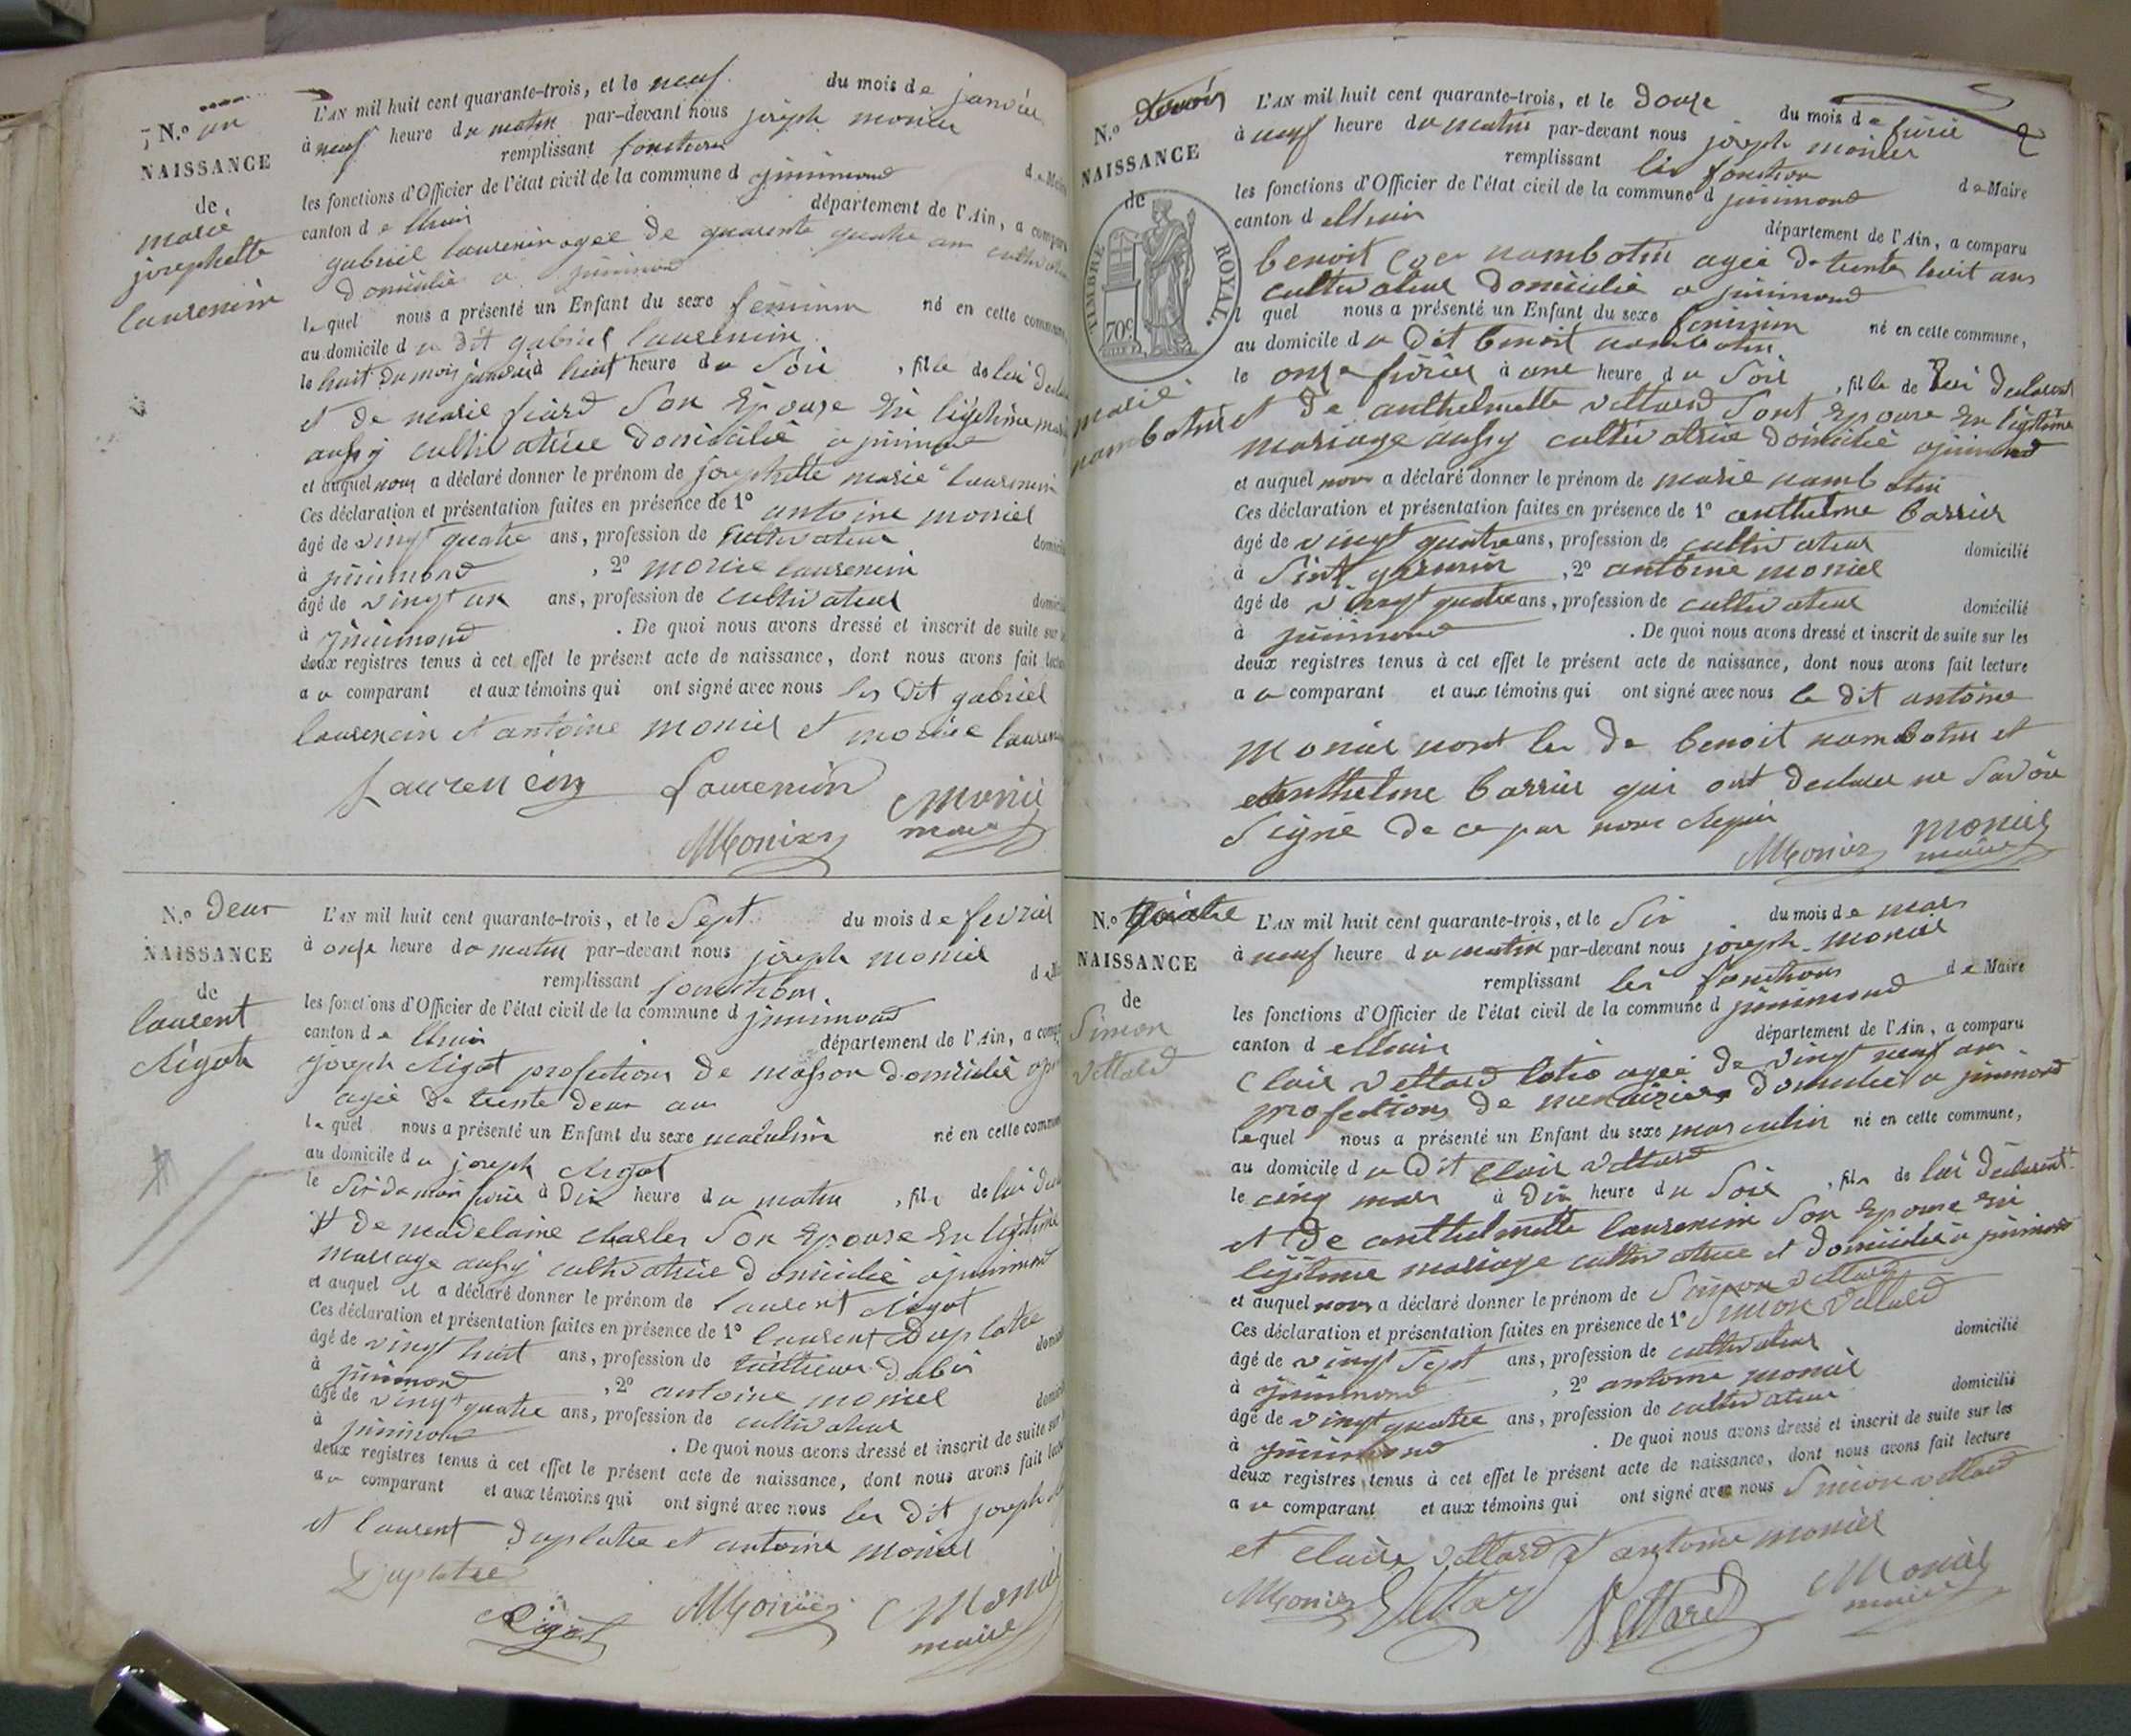 N.o un
NAISSANCE
de
marie
josephette
laurencin
L'AN mil huit cent quarante-trois, et le neuf du mois de janvier
à neuf heure du matin par-devant nous joseph monier
remplissant fonctions de Maire
les fonctions d'Officier de l'état civil de la commune d jujurieux
canton de lhuis département de l'Ain, a comparu
gabriel laurencin agee de quarente quatre an cultivateur
domicilié a
lequel nous a présenté un Enfant du sexe feminin né en cette commune
au domicile du dit gabriel laurencin
le huit du mois janvier à huit heure du Soir, fille de lui declarant
et de marie fiard Son Epouse En legitime mariage
aussy cultivatrice Domicilié a
et auquel nous a déclaré donner le prénom de josephette marie laurencin
Ces déclaration et présentation faites en présence de 1o antoine monier
âgé de vingt quatre ans, profession de cultivateur domicilié
à, 2o morice laurencin
âgé de vingt un ans, profession de cultivateur domicilié
à. De quoi nous avons dressé et inscrit de suite sur les
deux registres tenus à cet effet le présent acte de naissance, dont nous avons fait lecture
au comparant et aux témoins qui ont signé avec nous les Dit gabriel
laurencin et antoine monier et morice laurencin
Laurencin Laurencin Monier
AMonier maire
N.o Deux
NAISSANCE
de
laurent
Rigot
L'AN mil huit cent quarante-trois, et le Sept du mois de fevrier
à onze heure du matin par-devant nous joseph monier
remplissant fonctions de Maire
les fonctions d'Officier de l'état civil de la commune d
canton de lhuis département de l'Ain, a comparu
joseph Rigot profections de masson domicilié
agée De trente deux an
lequel nous a présenté un Enfant du sexe masculin né en cette commune
au domicile du joseph Rigot
le Six du mois fevrier à Dix heure du matin, fils de lui declarant
et de madelaine charles Son Epouse En legitime
mariage aussy cultivatrice domicilié
et auquel il a déclaré donner le prénom de laurent Rigot
Ces déclaration et présentation faites en présence de 1o laurent Duplatre
âgé de vingt huit ans, profession de tailleur D'abis domicilié
à, 2o antoine monier
âgé de vingt quatre ans, profession de cultivateur domicilié
à. De quoi nous avons dressé et inscrit de suite sur les
deux registres tenus à cet effet le présent acte de naissance, dont nous avons fait lecture
au comparant et aux témoins qui ont signé avec nous les Dit joseph
et laurent Duplatre et antoine monier
Duplatre
Rigot AMonier Monier
maire
N.o trois
NAISSANCE
de
TIMBRE ROYAL.
70c
marie
nambotin
L'AN mil huit cent quarante-trois, et le Douze du mois de fevrier
à neuf heure du matin par-devant nous joseph monier
remplissant les fonction de Maire
les fonctions d'Officier de l'état civil de la commune d
canton d lhuis département de l'Ain, a comparu
benoit nambotin agee de trente huit ans
cultivateur Domicilié a
lequel nous a présenté un Enfant du sexe feminin né en cette commune,
au domicile du Dit benoit nambotin
le onze fevrier à une heure du Soir, fille de lui Declarant
et De anthelmette vettard Sont Epouse En legitime
mariage aussy cultivatrice Domicilié
et auquel nous a déclaré donner le prénom de marie nambotin
Ces déclaration et présentation faites en présence de 1o anthelme barrier
âgé de vingt quatre ans, profession de cultivateur domicilié
à, 2o antoine monier
âgé de vingt quatre ans, profession de cultivateur domicilié
à. De quoi nous avons dressé et inscrit de suite sur les
deux registres tenus à cet effet le présent acte de naissance, dont nous avons fait lecture
au comparant et aux témoins qui ont signé avec nous le Dit antoine
monier nont les De benoit nambotin et
anthelme barrier qui ont declaree ne Savoir
Signé De ce par nous
AMonier monier
maire
N.o quatre
NAISSANCE
de
Simon
vettard
L'AN mil huit cent quarante-trois, et le Six du mois de mars
à neuf heure du matin par-devant nous joseph monier
remplissant les fonctions de Maire
les fonctions d'Officier de l'état civil de la commune d
canton d lhuis département de l'Ain, a comparu
Clair vettard agee De vingt neuf an
profections De menuisier domicilié a
lequel nous a présenté un Enfant du sexe masculin né en cette commune,
au domicile du Dit Clair vettard
le cinq mars à Dix heure du Soir, fils de lui Declarent
et De anthelmette laurencin Son Epouse En
legitime mariage cultivatrice et domicilié a
et auquel nous a déclaré donner le prénom de Simon vettard
Ces déclaration et présentation faites en présence de 1o Simon vettard
âgé de vingt Sept ans, profession de cultivateur domicilié
à, 2o antoine monier
âgé de vingt quatre ans, profession de cultivateur domicilié
à. De quoi nous avons dressé et inscrit de suite sur les
deux registres tenus à cet effet le présent acte de naissance, dont nous avons fait lecture
au comparant et aux témoins qui ont signé avec nous Simon vettard
et Claire vettard et antoine monier
AMonier Vettard Vettard Monier
maire